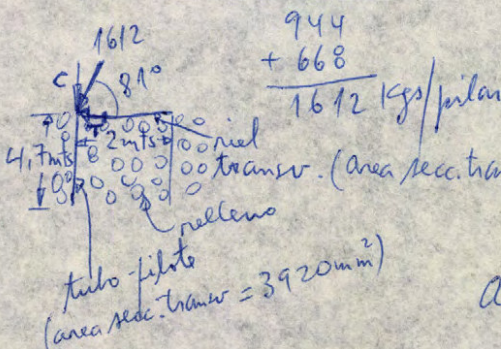 944
+ 668
1612 Kgs/pilar
1612
C
81°
4,7mts
2 mts
riel
transv. (area secc. tran
relleno
tubo-pilote
(area secc. transv = 3920mm²)